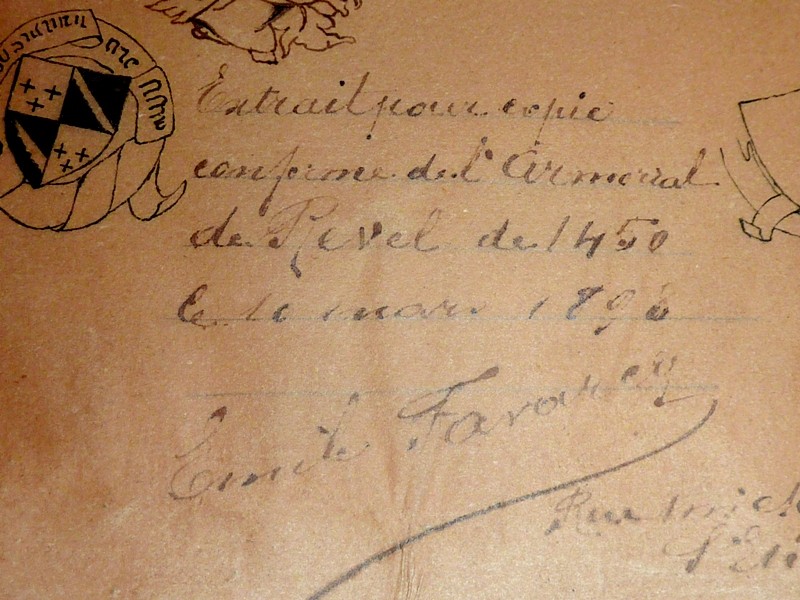 Extrait pour copie
conforme de l'Armorial
de Revel de 1450
le 10 mars 1898
Emile Favarcq
Rue